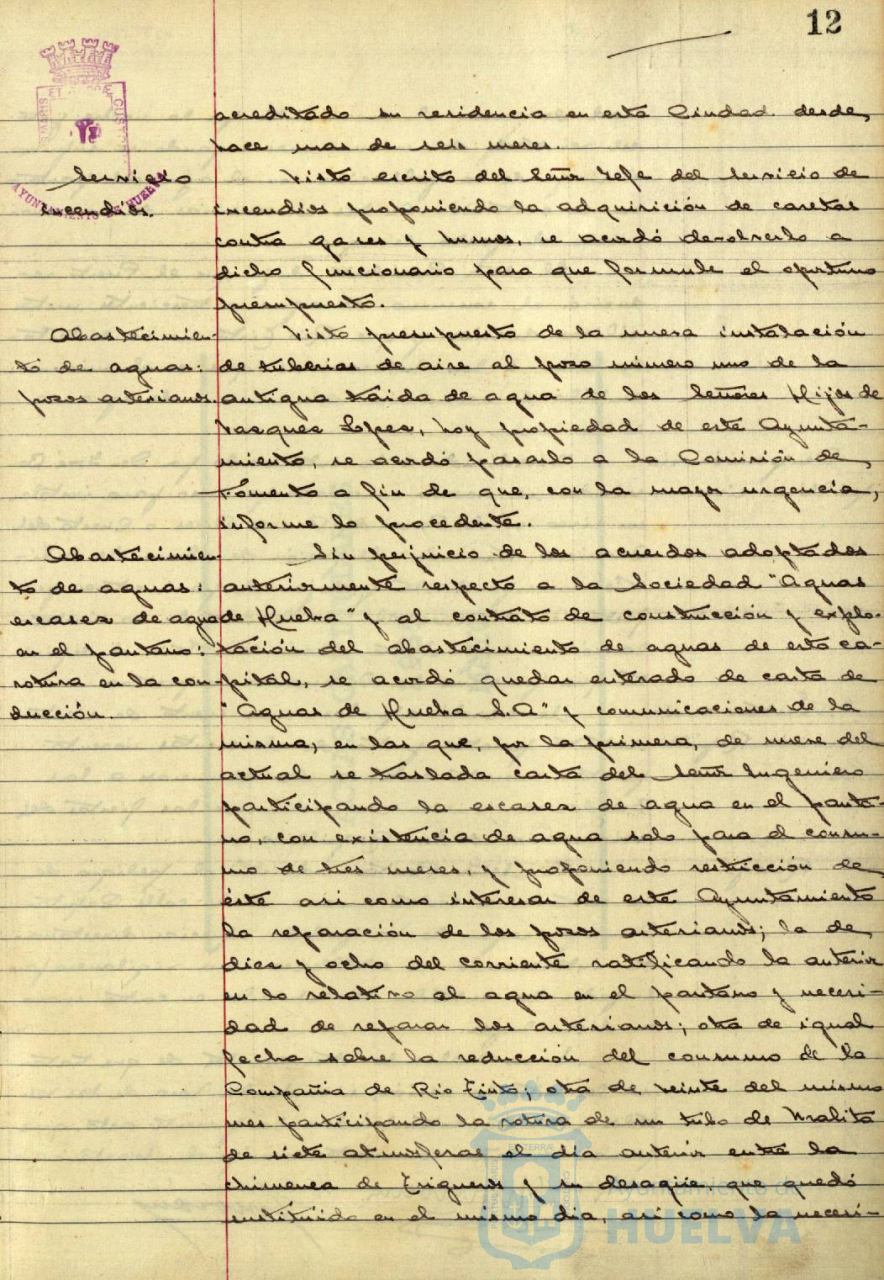 12
acreditado su residencia en esta Ciudad desde
hace mas de seis meses.
Servicio
incendios.
Visto escrito del Señor Jefe del Servicio de
incendios proponiendo la adquisición de caretas
contra gases y humos, se acordó devolverlo a
dicho funcionario para que formule el oportuno
presupuesto.
Abastecimien-
to de aguas:
pozos artesianos.
Visto presupuesto de la nueva instalación
de tuberias de aire al pozo número uno de la
antigua traida de agua de los Señores Hijos de
Vazquez Lopez, hoy propiedad de este Ayunta-
miento, se acordó pasarlo a la Comisión de
Fomento a fin de que, con la mayor urgencia,
informe lo procedente.
Abastecimien-
to de aguas:
escasez de agua
en el pantano:
rotura en la con-
ducción.
Sin perjuicio de los acuerdos adoptados
anteriormente respecto a la Sociedad "Aguas
de Huelva" y al contrato de construcción y explo-
tación del abastecimiento de aguas de esta ca-
pital, se acordó quedar enterado de carta de
"Aguas de Huelva S.A" y comunicaciones de la
misma, en las que, por la primera, de nueve del
actual se traslada carta del Señor Ingeniero
participando la escasez de agua en el panta-
no, con existencia de agua solo para el consu-
mo de tres meses, y proponiendo restricción de
éste asi como interesar de este Ayuntamiento
la reparación de los pozos artesianos; la de
diez y ocho del corriente ratificando la anterior
en lo relativo al agua en el pantano y necesi-
dad de reparar los artesianos; otra de igual
fecha sobre la reducción del consumo de la
Compañia de Rio Tinto; otra de veinte del mismo
mes participando la rotura de un tubo de Uralita
de siete atmosferas el dia anterior entre la
chimenea de Trigueros y su desagüe, que quedó
sustituido en el mismo dia, asi como la necesi-
AYUNTAMIENTO DE HUELVA
Ayuntamiento de
HUELVA